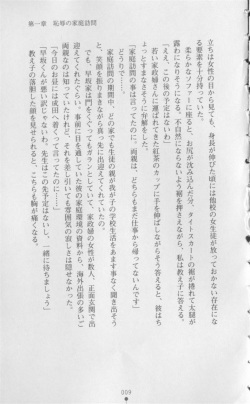 立ちは女性の目から見ても、身長が伸びた頃には他校の女生徒が放っておかない存在にな
る要素を十分持っていた。
柔らかなソファーに座ると、お尻が沈み込んだ分、タイトスカートの裾が捲れて太腿が
露わになりそうになる。不自然にならないよう裾を押さえながら、私は教え子に答える。
「ええ、この後の予定はないから、
若い家政婦さんが淹れてくれた紅茶のカップに手を伸ばしながら答えると、彼はち
ょっとすまなさそうに弁解をした。
「家庭訪問の事は言ってたのに、両親は、どちらもまだ仕事から帰ってないんで」
どうりで……。
家庭訪問の期間中、どの家でも生徒の親が我が子の学校生活をあますず事なく聞き出そう
と、笑顔を振りまきながら訪問先の玄関先に出迎えてくれていたのだ。
でも、早坂家は門をくぐってもガランとしていて、家政婦の女性が数人、正面玄関で出
迎えてくれたぐらい。事前に目を通していた彼の家庭環境の資料から、海外出張の多いご
両親なのは知っていたけれど、それを差し引いても雰囲気の寂しさは隠せなかった。
「今日のお昼には成田へ着いてるって言ってたのに」
教え子の落胆した顔を見せられると、こちらも胸が痛くなる。
「早坂くんが悪いんじゃないわ。先生はこの先予定はないし、一緒に待ちましょう」
第一章　恥辱の家庭訪問
009